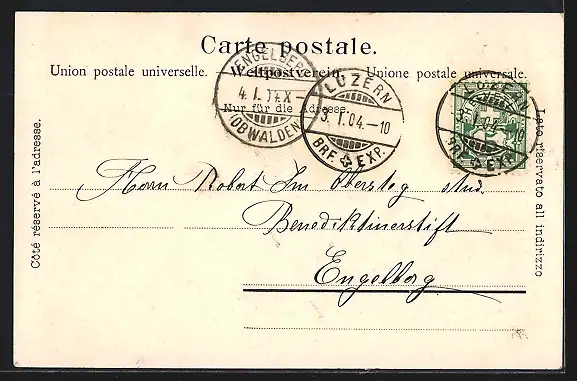 Carte postale.
Union postale universelle. — Weltpostverein. — Unione postale universale.
Nur für die Adresse.
Côté réservé à l'adresse.
Lato riservato all indirizzo
ENGELBERG
4. I. 04. X –
(OBWALDEN)
LUZERN
3. I. 04. – 10
BRF. EXP.
LUZERN
10
BRF. EXP.
Herrn Robert Im Obersteg stud.
Benediktinerstift
Engelberg